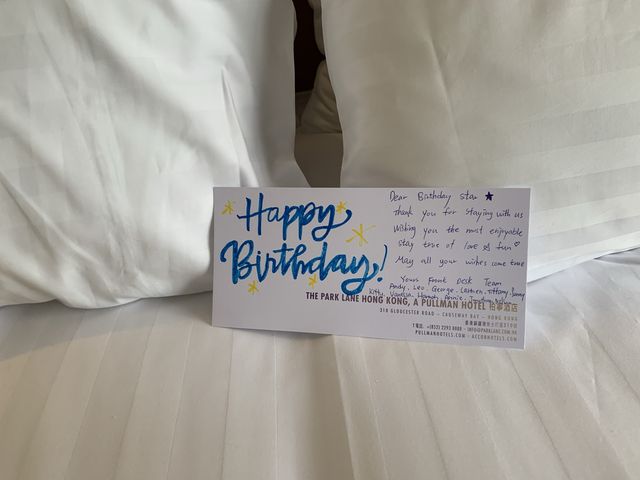 Happy
Birthday!
Dear Birthday Star ★
Thank you for staying with us
Wishing you the most enjoyable
stay time of love & fun ♡
May all your wishes come true
Yours Front Desk Team
Andy, Leo, George, Carmen, Tiffany, Sunny
Kitty, Vanessa, Hannah, Annie,
THE PARK LANE HONG KONG, A PULLMAN HOTEL 柏寧酒店
310 GLOUCESTER ROAD – CAUSEWAY BAY – HONG KONG
香港銅鑼灣告士打道310號
T電話. +(852) 2293 8888 - INFO@PARKLANE.COM.HK
PULLMANHOTELS.COM - ACCORHOTELS.COM